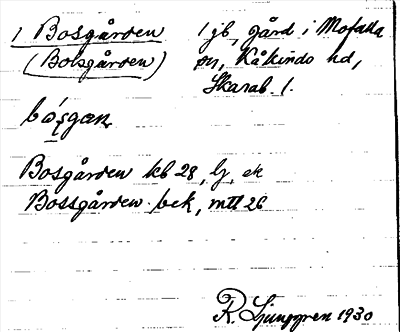 1 Bosgården 1 jb, gård i Mofalla
(Bolsgården) sn, Kåkinds hd,
Skarab. l.
bósgan
Bosgården kb 28, lj, ek
Bossgården bek, mtl 26
R. Ljunggren 1930